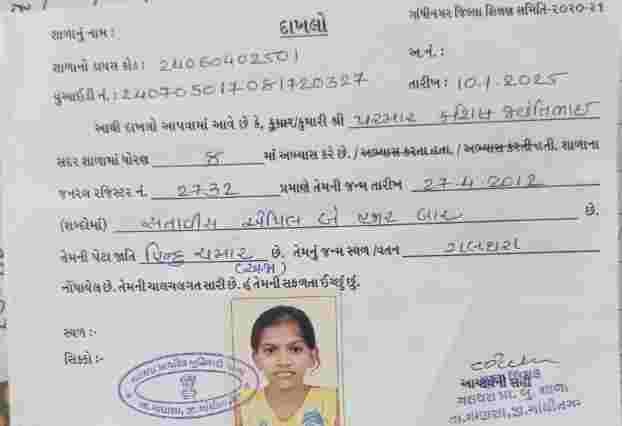 દાખલો
ગાંધીનગર જિલ્લા શિક્ષણ સમિતિ-૨૦૨૦-૨૧
શાળાનું નામ :
શાળાનો ડાયસ કોડ : 24060402501
અ.નં. :
યુઆઈડી નં. : 240705017081720327
તારીખ : 10.1.2025
આથી દાખલો આપવામાં આવે છે કે, કુમાર/કુમારી શ્રી પરમાર કશિષ જ્યંતિભાઈ
સદર શાળામાં ધોરણ 8 માં અભ્યાસ કરે છે. / અભ્યાસ કરતા હતા. / અભ્યાસ કરતી હતી. શાળાના
જનરલ રજિસ્ટર નં. 2732 પ્રમાણે તેમની જન્મ તારીખ 27.4.2012
(શબ્દોમાં) સતાવીસ એપ્રિલ બે હજાર બાર છે.
તેમની પેટા જાતિ હિન્દુ ચમાર છે. તેમનું જન્મ સ્થળ /વતન ગલથરા
(અજા)
નોંધાયેલ છે. તેમની ચાલચલગત સારી છે. હું તેમની સફળતા ઈચ્છું છું.
સ્થળ :-
સિક્કો :-
આચાર્યની સહી
ગલથરા પ્રા. કુ. શાળા
તા.માણસા, જી.ગાંધીનગર